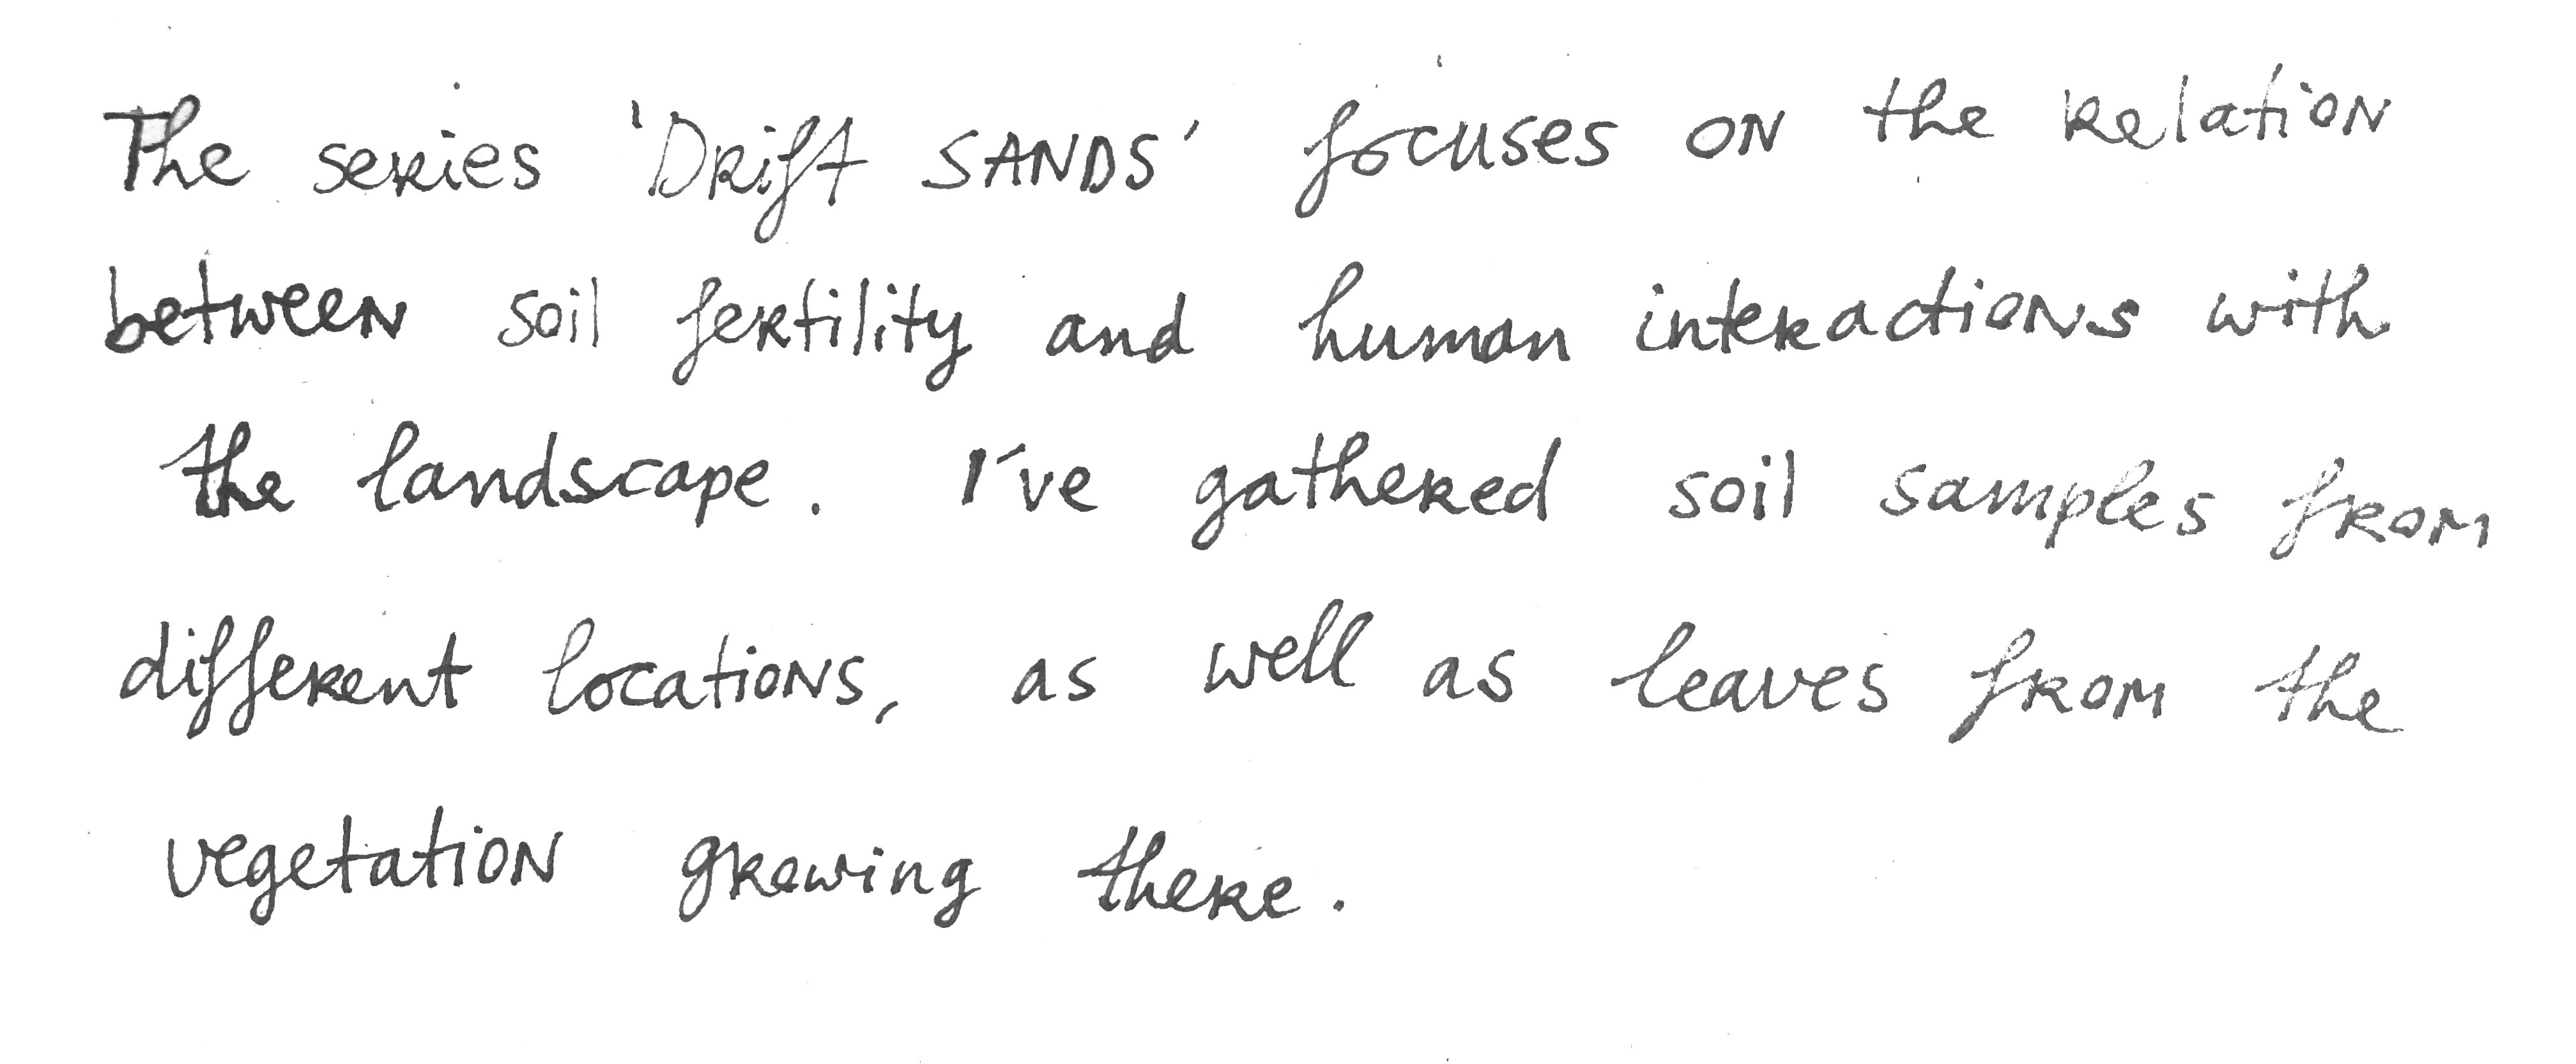 The series 'Drift SANDS' focuses on the relation
between soil fertility and human interactions with
the landscape. I've gathered soil samples from
different locations, as well as leaves from the
vegetation growing there.